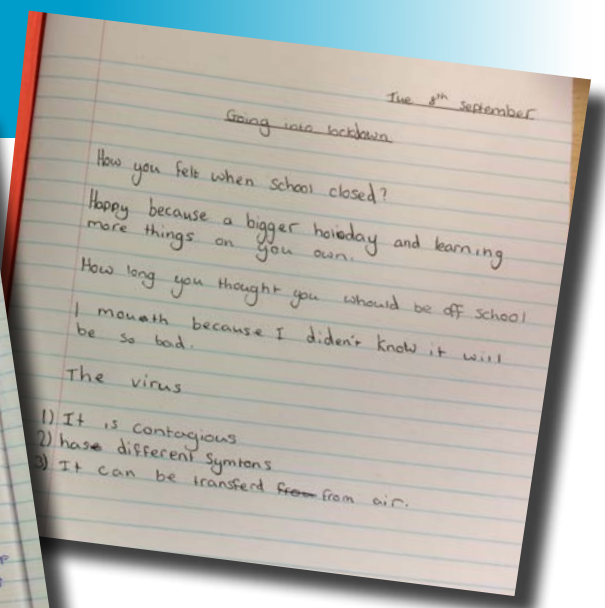 Tue 8th September
Going into lockdown
How you felt when school closed?
Happy because a bigger holoday and learning
more things on you own.
How long you thought you whould be off school
I mouath because I diden't know it will
be so bad.
The virus
1) It is contagious
2) hase different symtons
3) It can be transferd from from air.